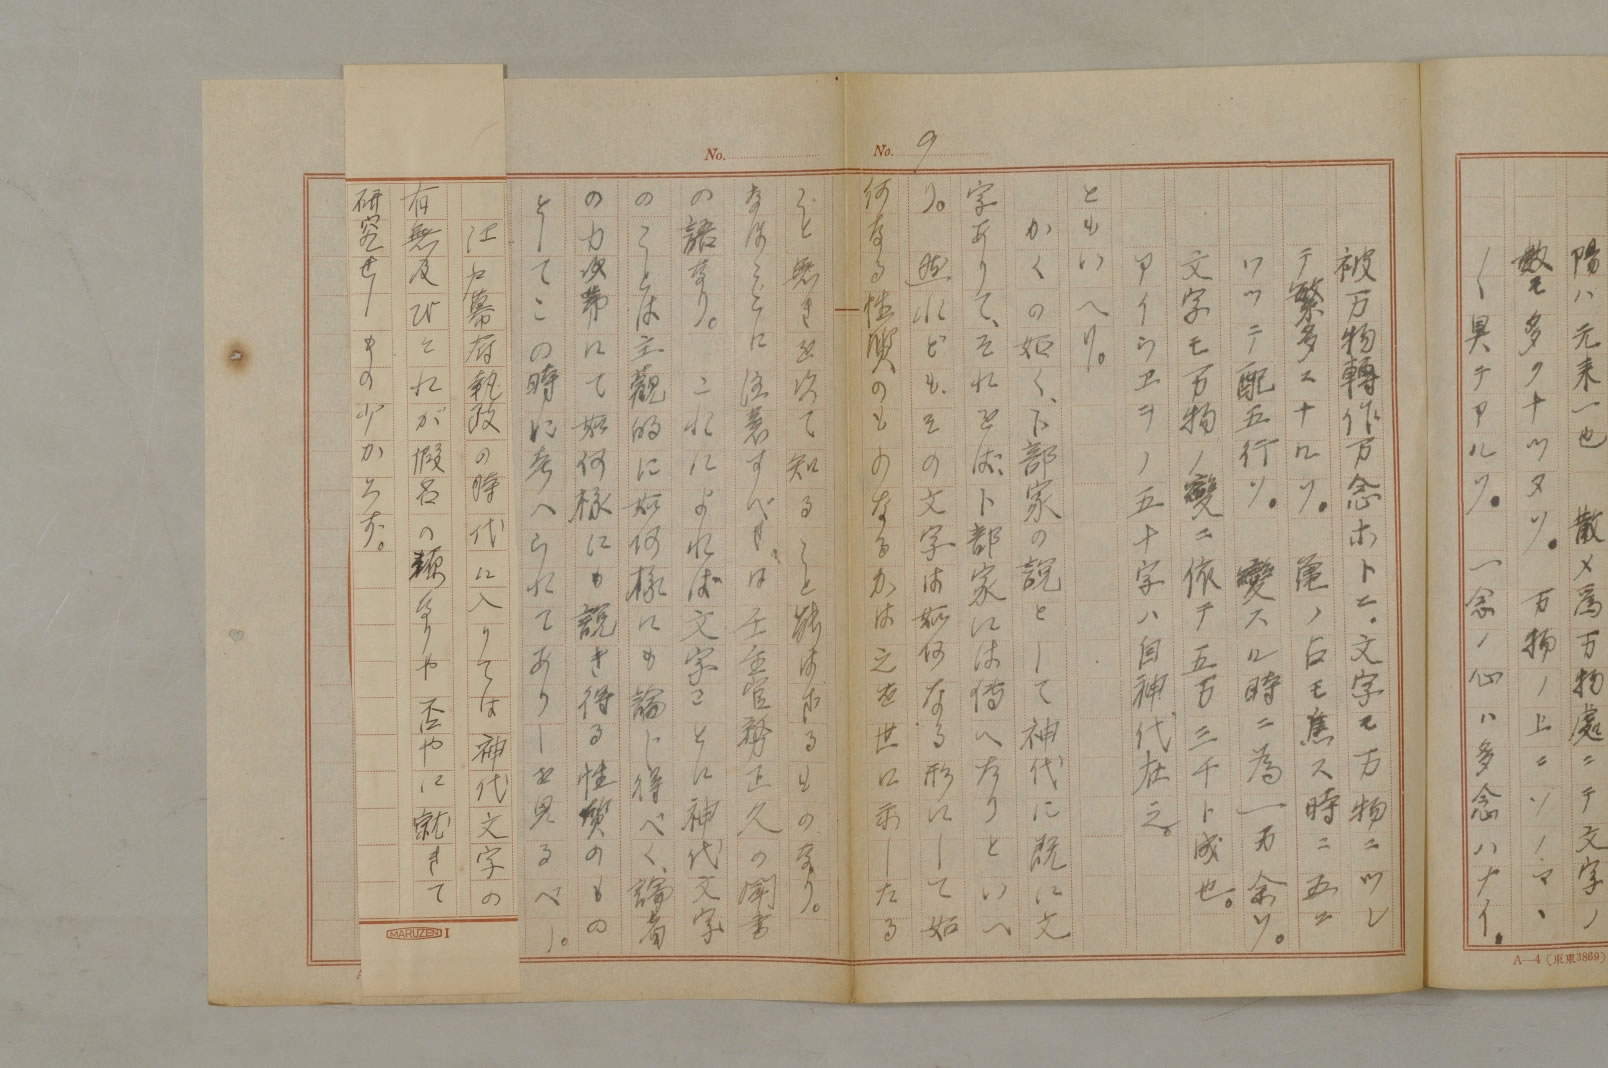 陽ハ元来一也 散メ為万物處ニテ文字ノ
数モ多クナツタソ。万物ノ上ニソノマヽ
〱具テアルソ。一念ノ心ハ多念ハナイ。
A—4（東東3869）
No. 9
被万物轉作万念ホトニ。文字モ万物ニツレ
テ繁多ニナルソ。亀ノ占モ焦ス時ニ五ニ
ワツテ配五行ソ。変スル時ニ為一万余ソ。
文字モ万物ノ變ニ依テ五万三千ト成也。
アイウエヲノ五十字ハ自神代在之。
ともいへり。
かくの如く、卜部家の説として神代に既に文
字ありて、それをば、卜部家には傳へたりといへ
り。然れども、その文字は如何なる形にして如
何なる性質のものなるかは之を世に示したる
No.
こと無きを以て知ること能はざるものなり。
なほここに注意すべきは壬生官務正久の聞書
の語なり。これによれば文字ことに神代文字
のことは主觀的に如何様にも論じ得べく、論者
の力次第にて如何様にも説き得る性質のもの
としてこの時に考へられてありしを見るべし。
江戸幕府執政の時代に入りては神代文字の
有無及びそれが假名の源なりや否やに就きて
研究せしもの少からず。
MARUZEN I